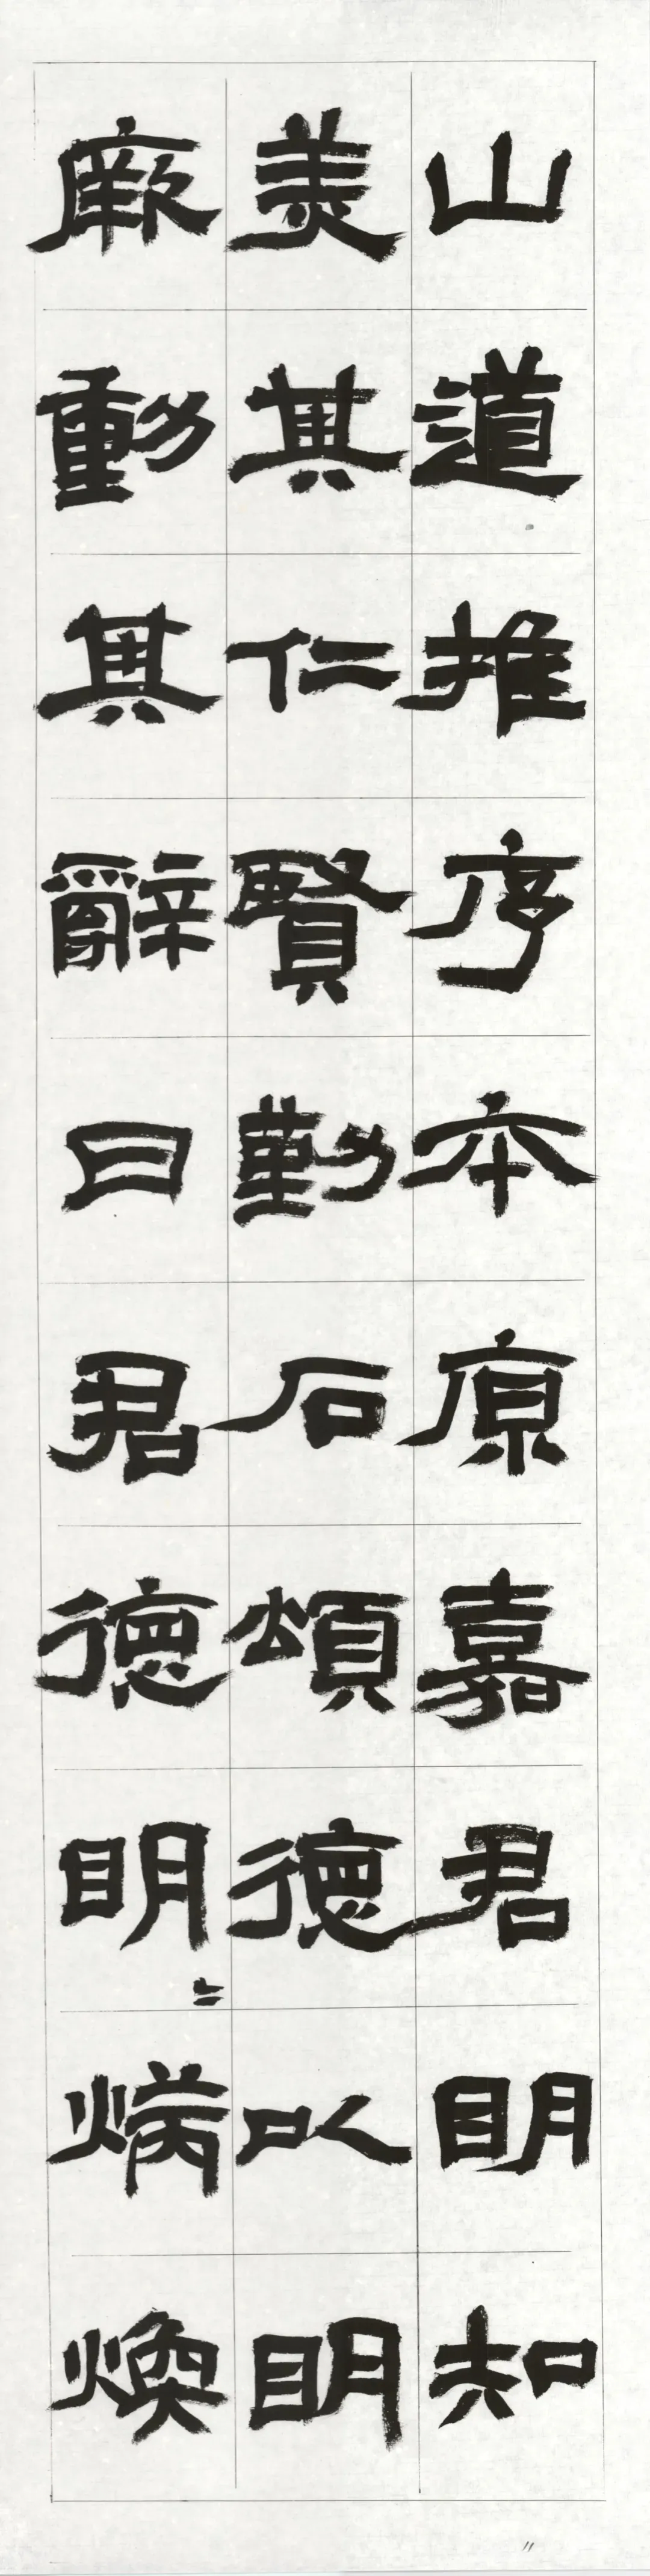 山道推序本原嘉君明知
美其仁賢勒石頌德以明
厥勳其辭曰君德明〻炳煥